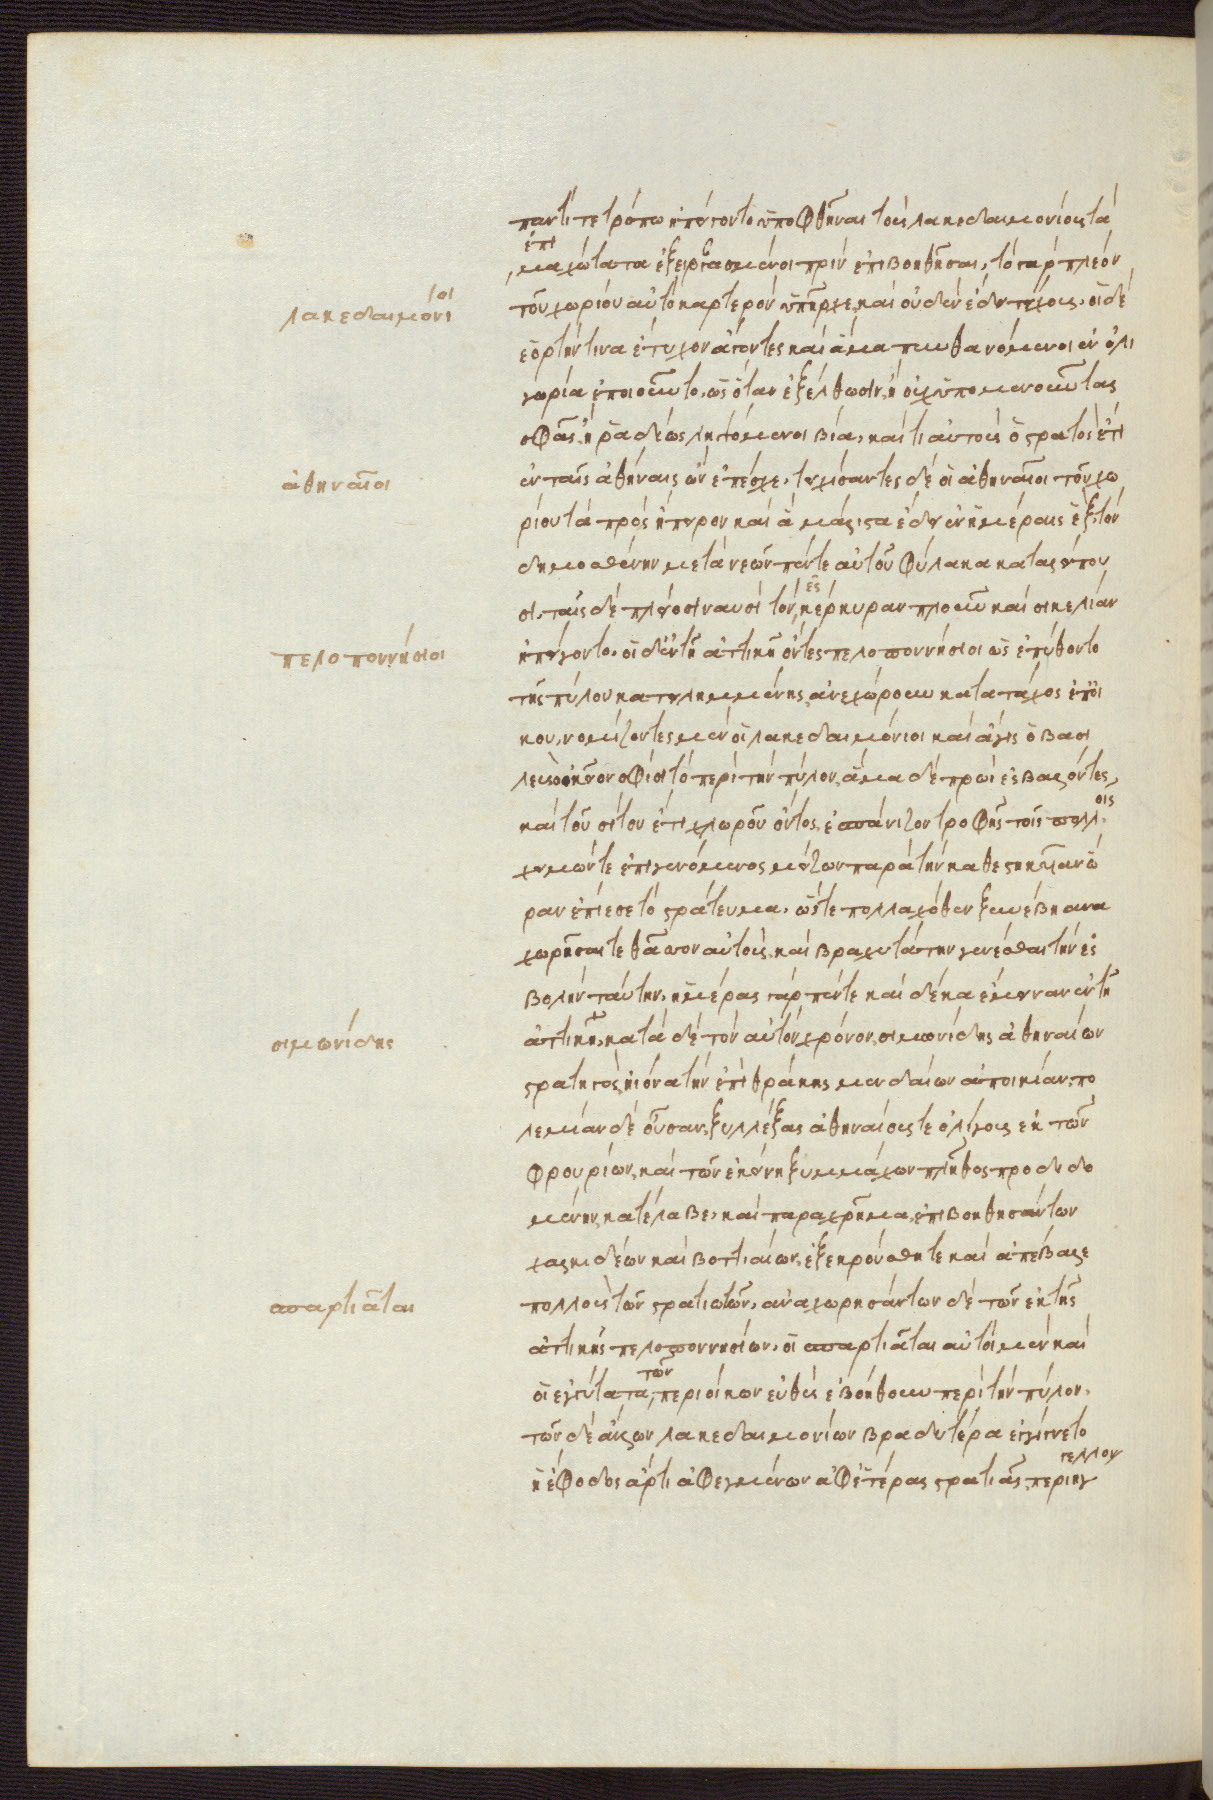 παντί τε τρόπω ἠπείγοντο ὑποφθῆναι τοὺς λακεδαιμονίους τὰ
ἐπι
μαχώτατα ἐξειργασμένοι πρὶν ἐπιβοηθῆσαι, τὸ γὰρ πλέον
τοῦ χωρίου αὐτὸ καρτερὸν ὑπῆρχε, καὶ οὐδὲν ἔδει τείχους, οἱ δὲ
λακεδαιμόνιοι
ἑορτήν τινα ἔτυχον ἄγοντες καὶ ἅμα πυνθανόμενοι ἐν ὀλι
γωρία ἐποιοῦντο, ὡς ὅταν ἐξέλθωσιν, ἢ οὐχ ὑπομενοῦντας
σφᾶς, ἢ ῥαδίως ληψόμενοι βία, καί τι αὐτοὺς ὁ στρατὸς ἔτι
ἐν ταῖς ἀθήναις ὢν ἐπέσχε, τειχίσαντες δὲ οἱ ἀθηναῖοι τοῦ χω
ἀθηναῖοι
ρίου τὰ πρὸς ἤπειρον καὶ ἃ μάλιστα ἔδει ἐν ἡμέραις ἓξ, τὸν
δημοσθένην μετὰ νεῶν πέντε αὐτοῦ φύλακα καταλείπου
σι, ταῖς δὲ πλείοσι ναυσὶ τὸν ἐς κέρκυραν πλοῦν καὶ σικελίαν
ἠπείγοντο, οἱ δ' ἐν τῆ ἀττικῆ ὄντες πελοποννήσιοι ὡς ἐπύθοντο
πελοποννήσιοι
τῆς πύλου κατειλημμένης, ἀνεχώρουν κατὰ τάχος ἐπ' οἴ
κου, νομίζοντες μὲν οἱ λακεδαιμόνιοι καὶ ἆγις ὁ βασι
λεὺς οἰκεῖον σφίσι τὸ περὶ τὴν πύλον, ἅμα δὲ πρωὶ ἐσβαλόντες,
καὶ τοῦ σίτου ἔτι χλωροῦ ὄντος, ἐσπάνιζον τροφῆς τοῖς πολλοῖς
χειμών τε ἐπιγενόμενος μείζων παρὰ τὴν καθεστηκυῖαν ὥ
ραν ἐπίεσε τὸ στράτευμα, ὥστε πολλαχόθεν ξυνέβη ἀνα
χωρῆσαί τε θᾶσσον αὐτοὺς, καὶ βραχυτάτην γενέσθαι τὴν ἐσ
βολὴν ταύτην, ἡμέρας γὰρ πέντε καὶ δέκα ἔμειναν ἐν τῆ
ἀττικῆ, κατὰ δὲ τὸν αὐτὸν χρόνον, σιμωνίδης ἀθηναίων
σιμωνίδης
στρατηγὸς, ἠιόνα τὴν ἐπὶ θράκης μενδαίων ἀποικίαν, πο
λεμίαν δὲ οὖσαν, ξυλλέξας ἀθηναίους τε ὀλίγους ἐκ τῶν
φρουρίων, καὶ τῶν ἐκείνη ξυμμάχων πλῆθος προδιδο
μένην, κατέλαβε, καὶ παραχρῆμα, ἐπιβοηθησάντων
χαλκιδέων καὶ βοττιαίων, ἐξεκρούσθη τε καὶ ἀπέβαλε
πολλοὺς τῶν στρατιωτῶν, ἀναχωρησάντων δὲ τῶν ἐκ τῆς
ἀττικῆς πελοποννησίων, οἱ σπαρτιᾶται αὐτοὶ μὲν καὶ
σπαρτιᾶται
οἱ ἐγγύτατα τῶν περιοίκων εὐθὺς ἐβοήθουν περὶ τὴν πύλον,
τῶν δὲ ἄλλων λακεδαιμονίων βραδυτέρα ἐγίγνετο
ἡ ἔφοδος ἄρτι ἀφιγμένων ἀφ' ἑτέρας στρατιᾶς, περιήγ
γελλον